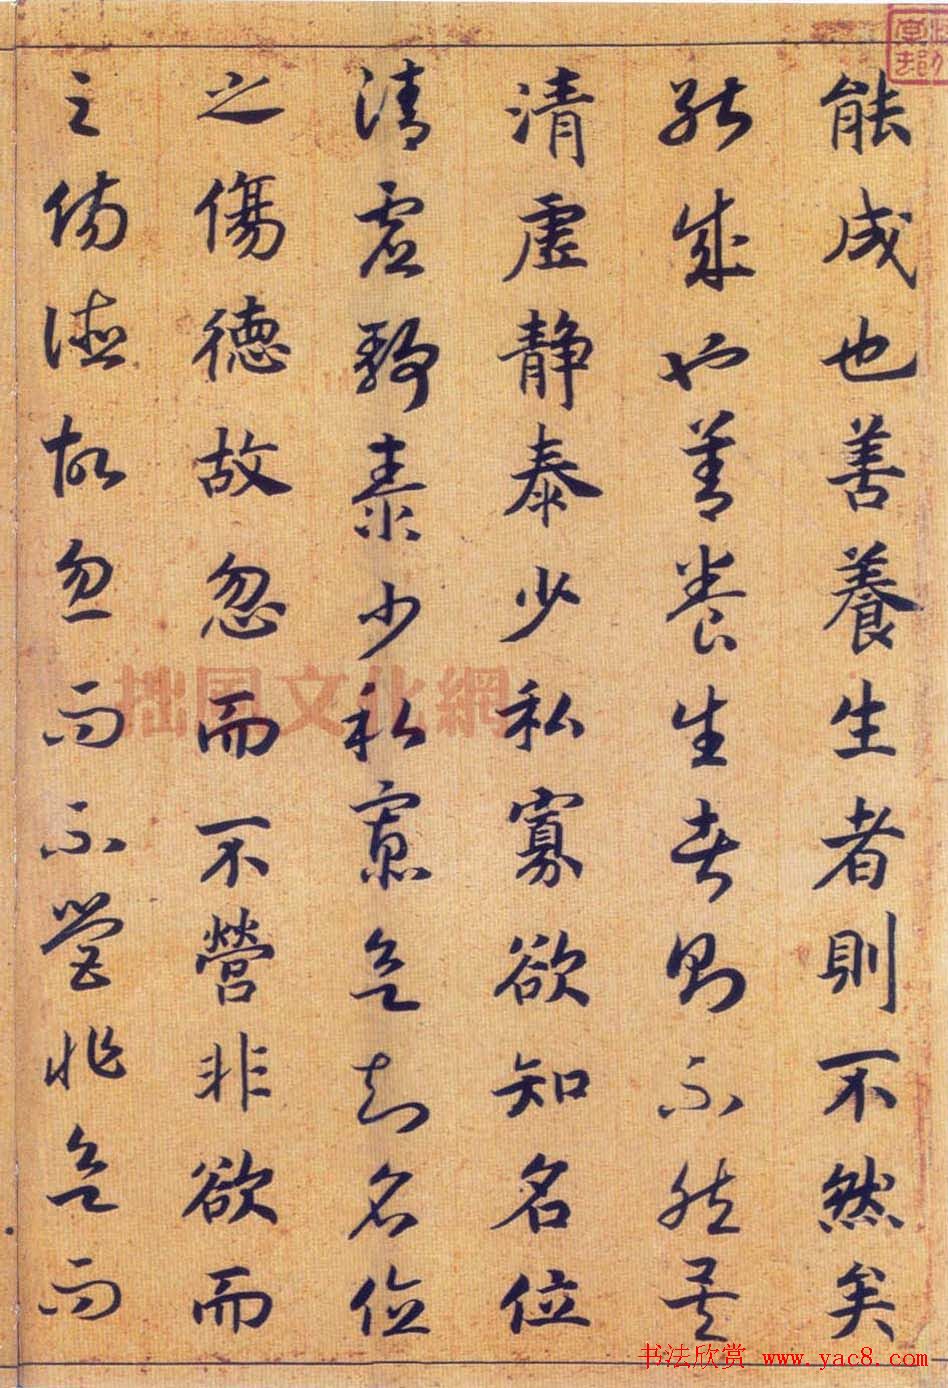 能成也善養生者則不然矣
能成也善養生者則不然矣
清虛静泰少私寡欲知名位
清虛静泰少私寡欲知名位
之傷德故忽而不營非欲而
之傷德故忽而不營非欲而
拙風文化網
书法欣赏 www.yac8.com